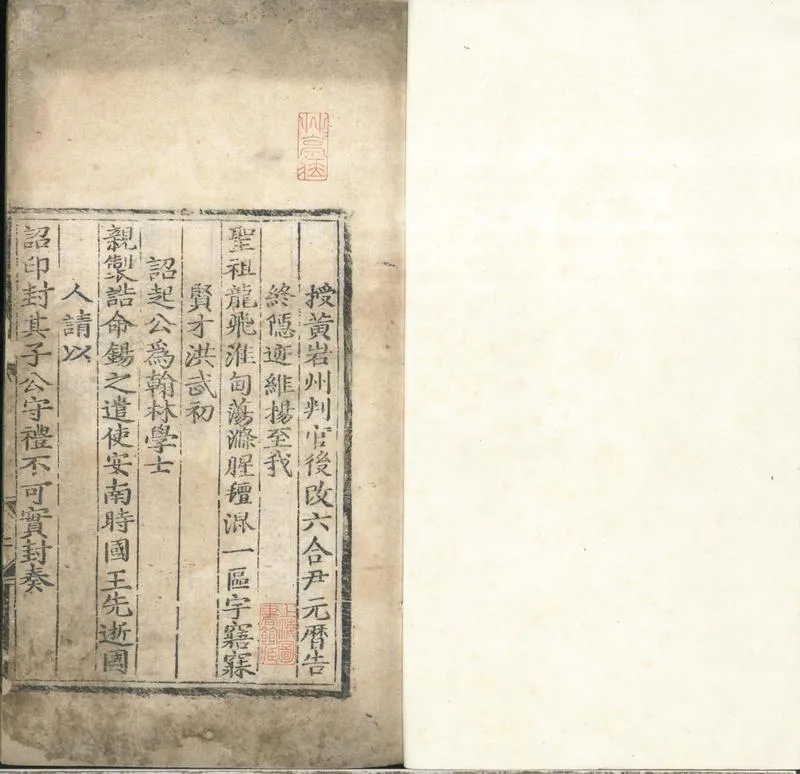 授黃岩州判官後改六合尹元曆告
終隱迹維揚至我
聖祖龍飛淮甸蕩滌腥羶混一區宇寤寐
賢才洪武初
詔起公爲翰林學士
親製誥命錫之遣使安南時國王先逝國
人請以
詔印封其子公守禮不可實封奏
上海圖
書館藏